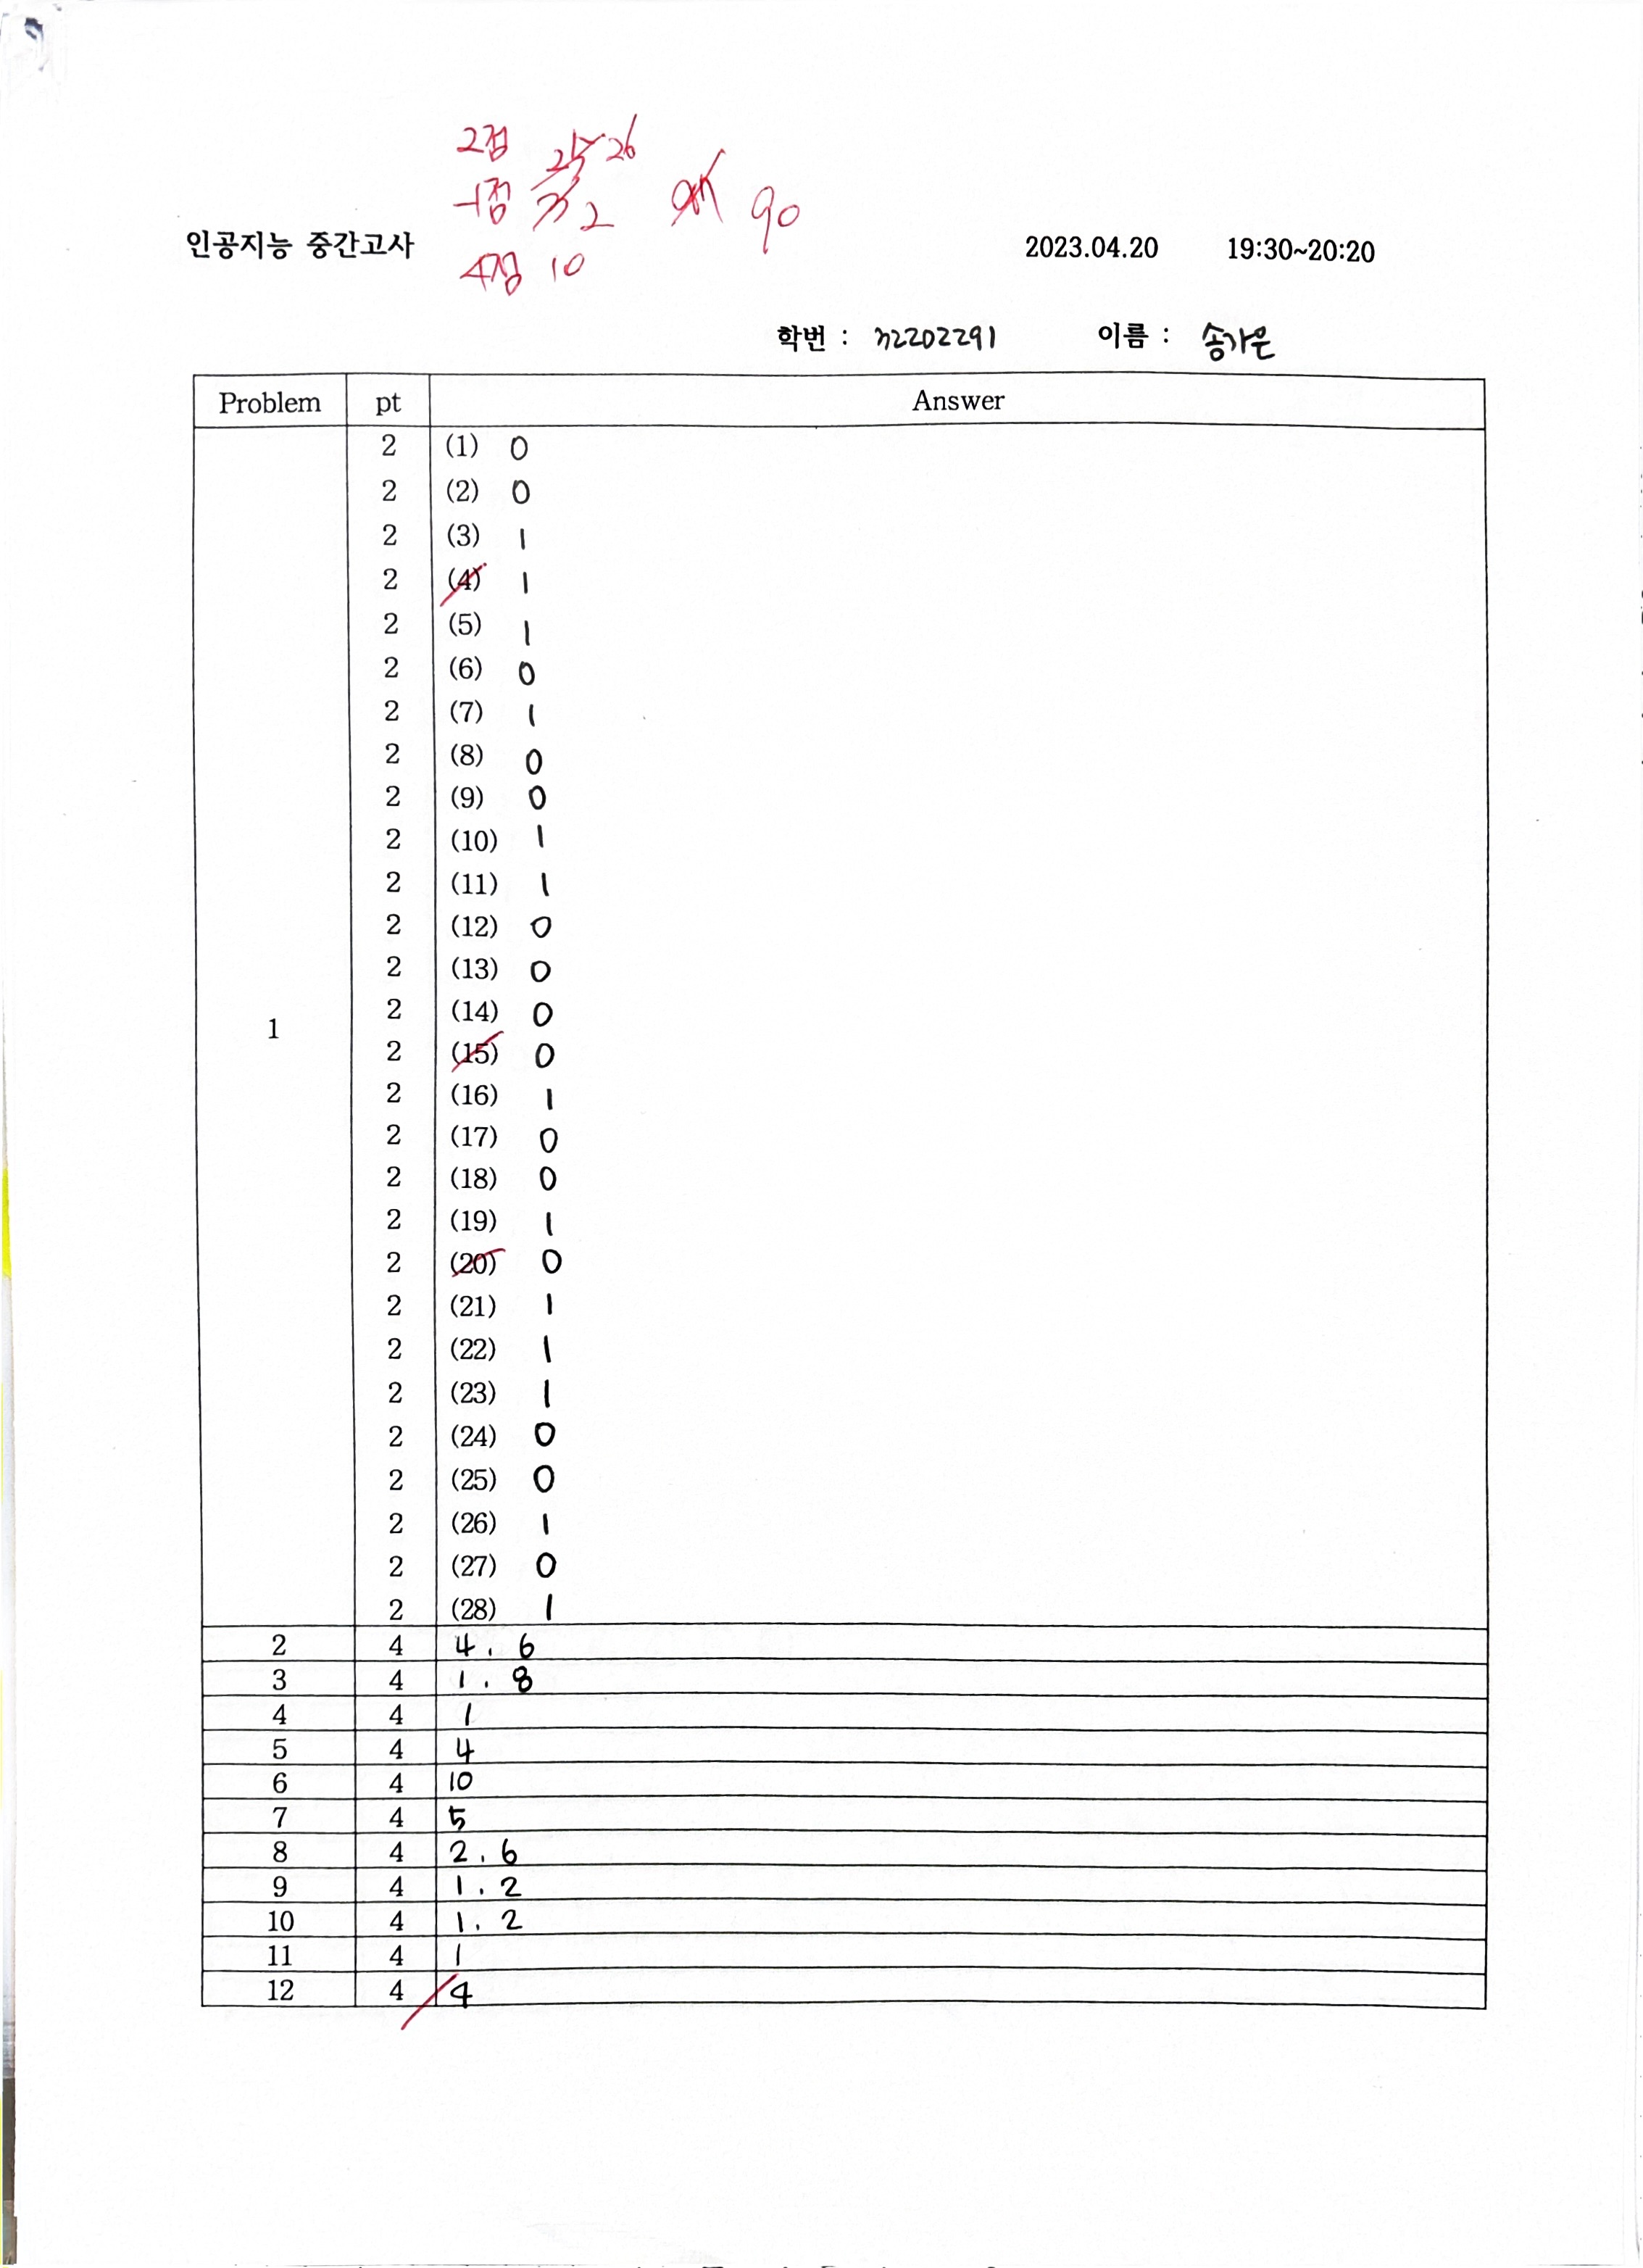 2점 26
-1점 2 90
인공지능 중간고사 2023.04.20 19:30~20:20
4점 10
학번 : 32202291 이름 : 송가은
Problem pt Answer
1
2 (1) 0
2 (2) 0
2 (3) 1
2 (4) 1
2 (5) 1
2 (6) 0
2 (7) 1
2 (8) 0
2 (9) 0
2 (10) 1
2 (11) 1
2 (12) 0
2 (13) 0
2 (14) 0
2 (15) 0
2 (16) 1
2 (17) 0
2 (18) 0
2 (19) 1
2 (20) 0
2 (21) 1
2 (22) 1
2 (23) 1
2 (24) 0
2 (25) 0
2 (26) 1
2 (27) 0
2 (28) 1
2 4 4, 6
3 4 1, 8
4 4 1
5 4 4
6 4 10
7 4 5
8 4 2, 6
9 4 1, 2
10 4 1, 2
11 4 1
12 4 4